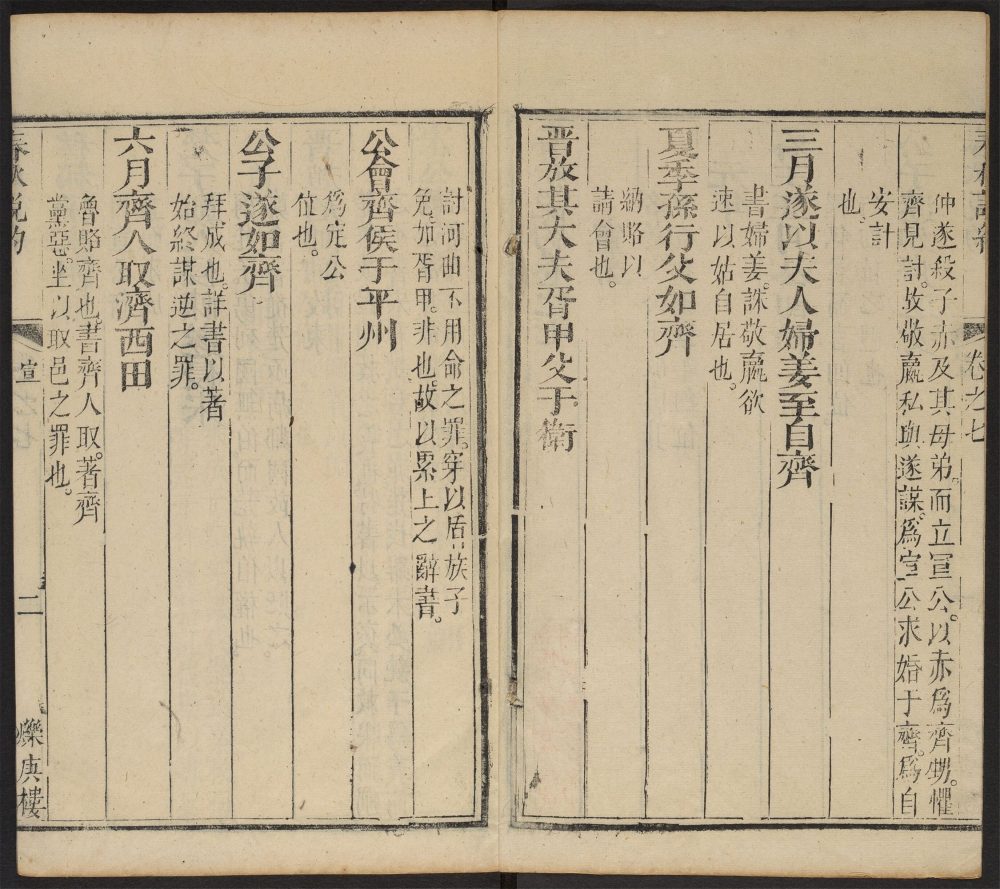 卷之七
仲遂殺子赤及其母弟。而立宣公。以赤爲齊甥。懼
齊見討。故敬嬴私與遂謀。爲宣公求婚于齊。爲自
安計
也。
三月遂以夫人婦姜至自齊
書婦姜。誅敬嬴欲
速以姑自居也。
夏季孫行父如齊
納賂以
請會也。
晋放其大夫胥甲父于衛
討河曲不用命之罪。穿以盾族子
免。加胥甲。非也。故以累上之辭書。
公會齊侯于平州
爲定公
位也。
公子遂如齊
拜成也。詳書以著
始終謀逆之罪。
六月齊人取濟西田
魯賂齊也。書齊人取。著齊
黨惡。坐以取邑之罪也。
宣
二
爍庚樓